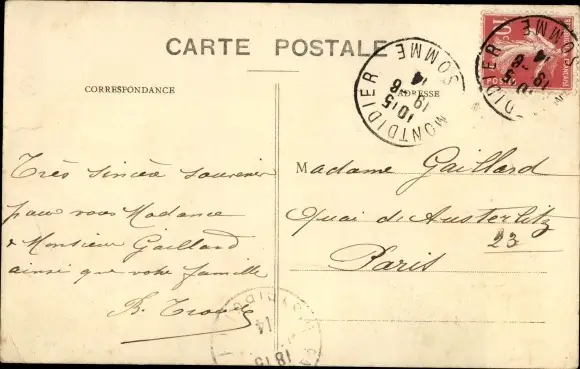 CARTE POSTALE
CORRESPONDANCE
ADRESSE
Très sincère souvenir
pour vous Madame
& Monsieur Gaillard
ainsi que votre famille
B.
Madame Gaillard
Quai de Austerlitz
23
Paris
MONTDIDIER
SOMME
10 15
19 -6
14
10c
POSTES
MONTDIDIER
SOMME
19 -6
14
14
18 15